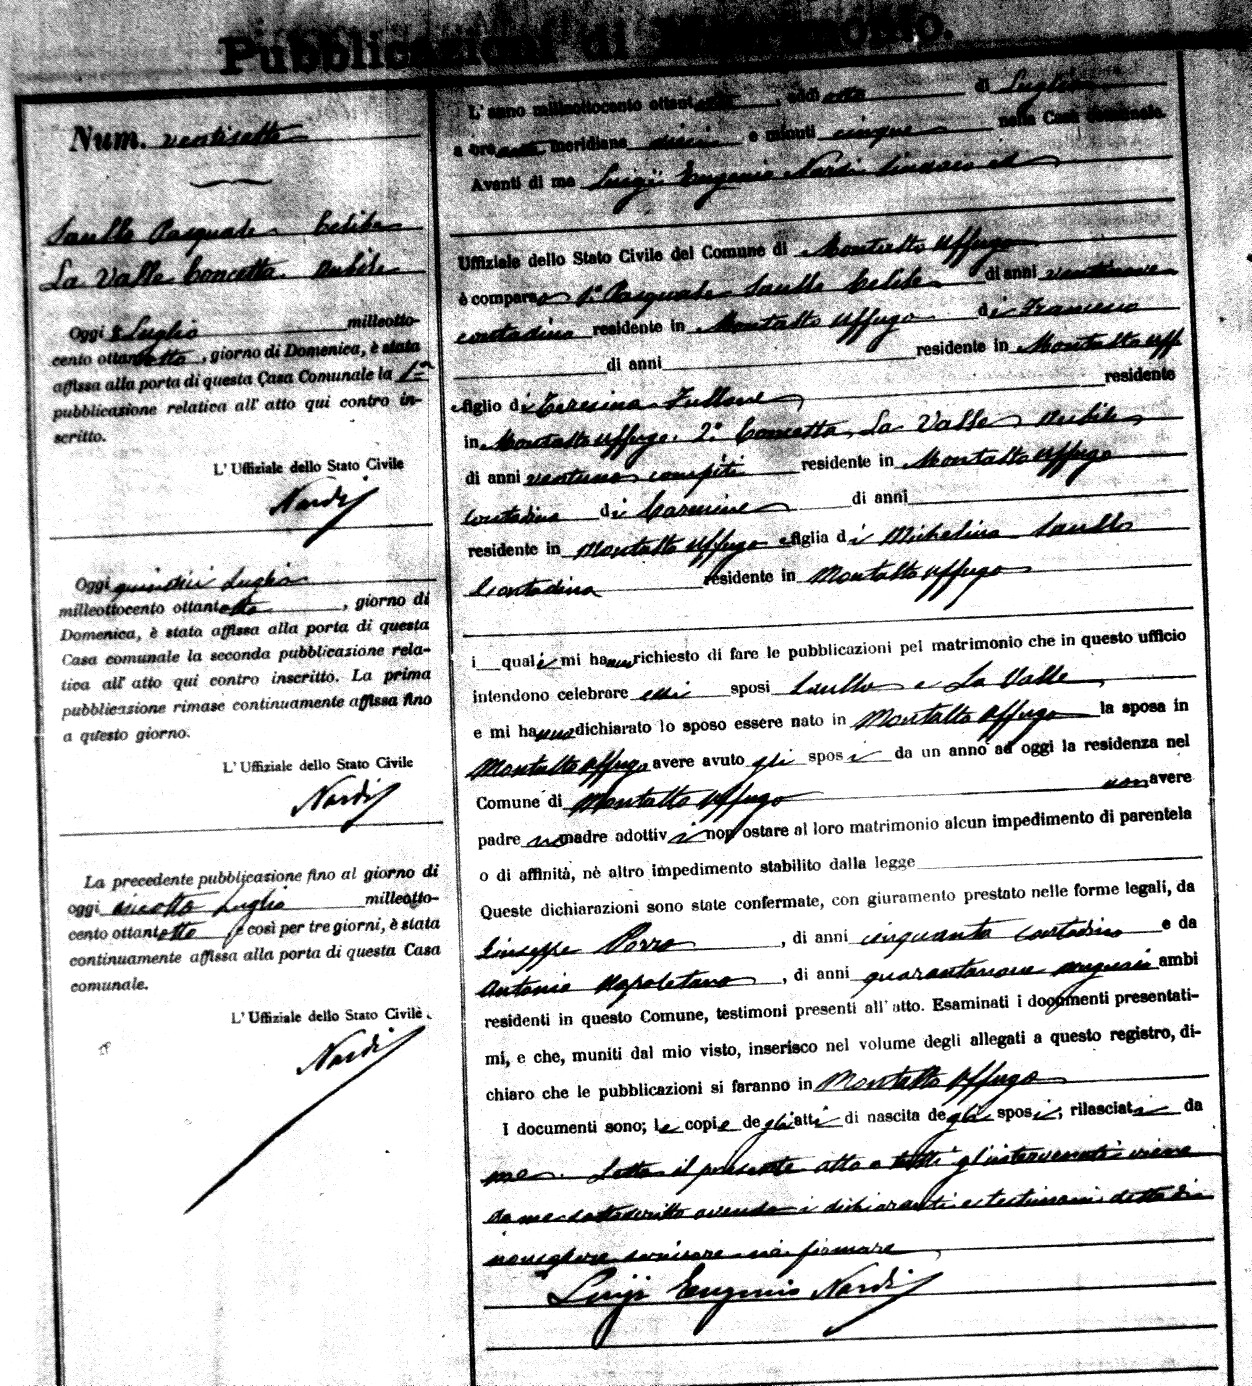 Pubblicazioni di Matrimonio.
Num. ventisette
Saullo Pasquale Celibe
La Valle Concetta Nubile
Oggi 8 Luglio milleotto-
cento ottantotto, giorno di Domenica, è stata
affissa alla porta di questa Casa Comunale la 1a
pubblicazione relativa all' atto qui contro in-
scritto.
L' Uffiziale dello Stato Civile
Nardi
Oggi quindici Luglio
milleottocento ottantotto, giorno di
Domenica, è stata affissa alla porta di questa
Casa comunale la seconda pubblicazione rela-
tiva all' atto qui contro inscritto. La prima
pubblicazione rimase continuamente affissa fino
a questo giorno.
L' Uffiziale dello Stato Civile
Nardi
La precedente pubblicazione fino al giorno di
oggi Luglio milleotto-
cento ottantotto, e così per tre giorni, è stata
continuamente affissa alla porta di questa Casa
comunale.
L' Uffiziale dello Stato Civile
Nardi
L' anno milleottocento ottantotto, addì otto di Luglio
a ore anti meridiane dieci e minuti cinque nella Casa Comunale.
Avanti di me Luigi Eugenio Nardi Sindaco ed
Uffiziale dello Stato Civile del Comune di Montalto Uffugo
è comparso 1° Pasquale Saullo Celibe di anni ventinove
contadino residente in Montalto Uffugo di Francesco
di anni residente in Montalto Uff
e figlio di Teresina Fullone residente
in Montalto Uffugo. 2° Concetta La Valle Nubile
di anni ventuno compiti residente in Montalto Uffugo
Contadina di Carmine di anni
residente in Montalto Uffugo e figlia di Michelina Saullo
Contadina residente in Montalto Uffugo
i quali mi hanno richiesto di fare le pubblicazioni pel matrimonio che in questo ufficio
intendono celebrare essi sposi Saullo e La Valle
e mi hanno dichiarato lo sposo essere nato in Montalto Uffugo la sposa in
Montalto Uffugo avere avuto gli sposi da un anno ad oggi la residenza nel
Comune di Montalto Uffugo non avere
padre madre adottivi non ostare al loro matrimonio alcun impedimento di parentela
o di affinità, nè altro impedimento stabilito dalla legge
Queste dichiarazioni sono state confermate, con giuramento prestato nelle forme legali, da
Giuseppe Porro, di anni cinquanta contadino e da
Antonio Napoletano, di anni quarantanove ambi
residenti in questo Comune, testimoni presenti all' atto. Esaminati i documenti presentati-
mi, e che, muniti dal mio visto, inserisco nel volume degli allegati a questo registro, di-
chiaro che le pubblicazioni si faranno in Montalto Uffugo
I documenti sono; le copie degli atti di nascita degli sposi; rilasciati da
me. Letto il presente atto a tutti gl'intervenuti viene
da me sottoscritto avendo i dichiaranti e testimoni detto di
non sapere firmare
Luigi Eugenio Nardi